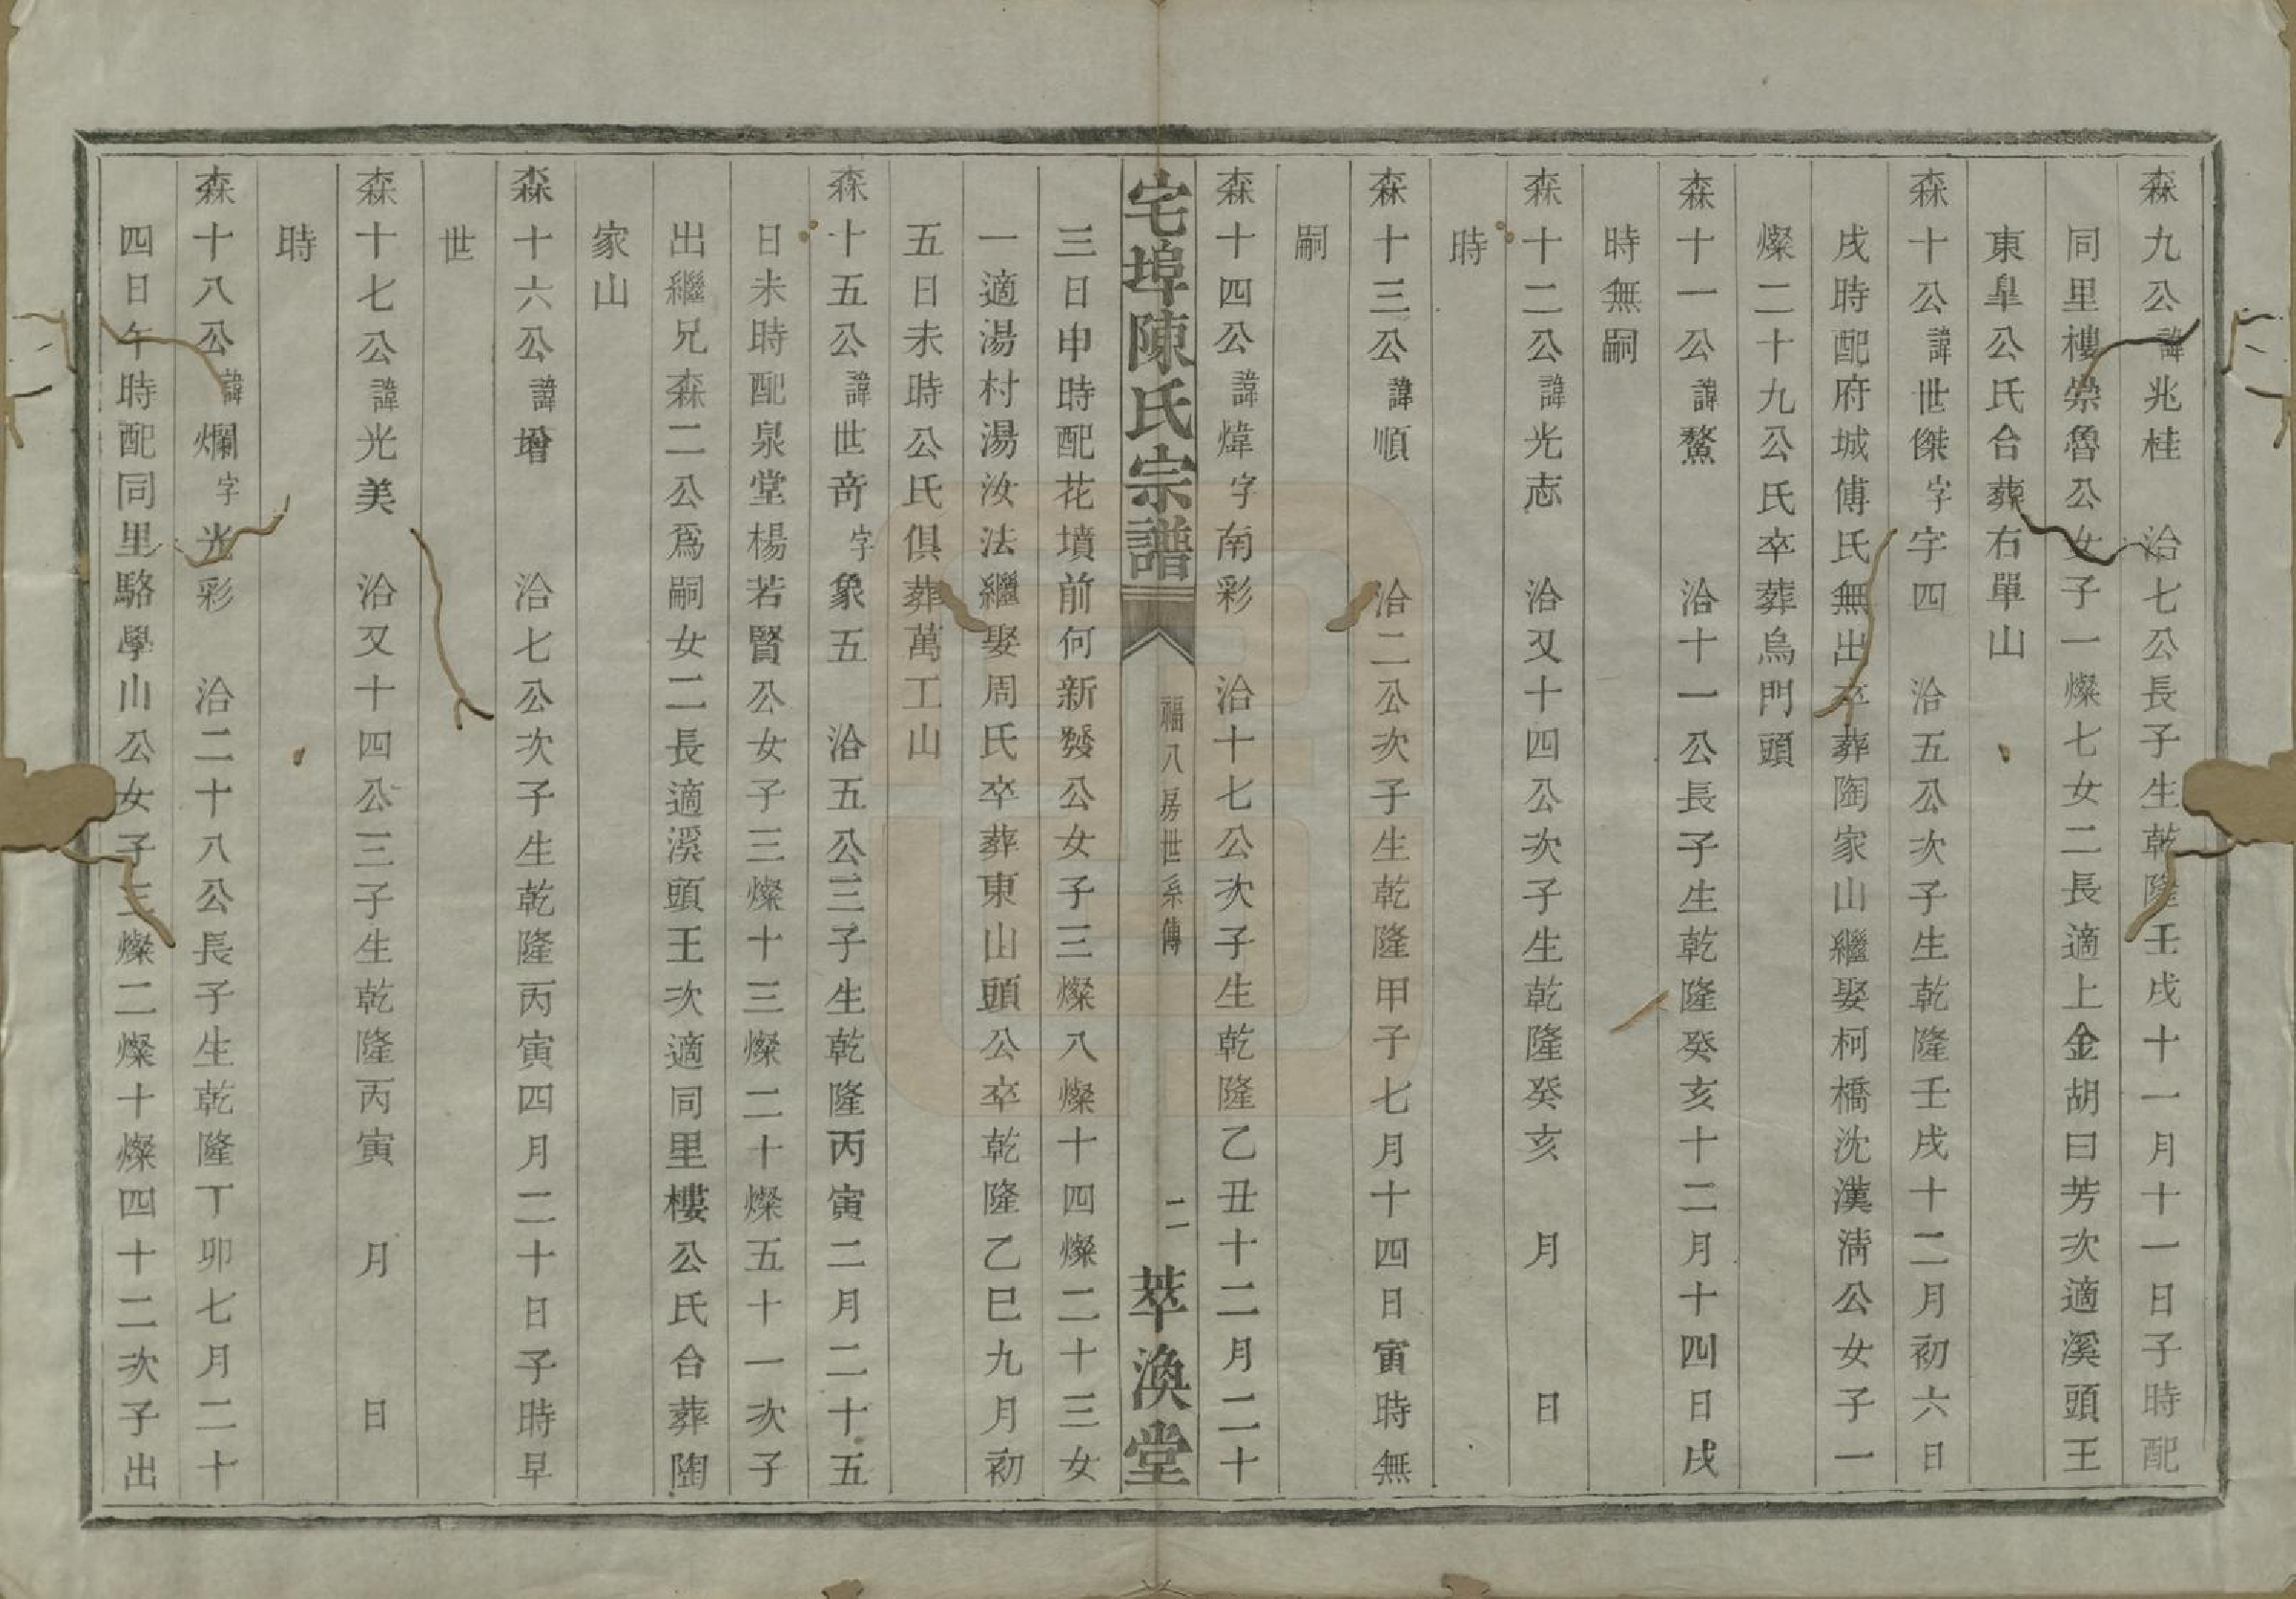 森九公諱兆桂　洽七公長子生乾隆壬戌十一月十一日子時配
同里樓崇魯公女子一燦七女二長適上金胡曰芳次適溪頭王
東臯公氏合葬右單山
森十公諱世傑字字四　洽五公次子生乾隆壬戌十二月初六日
戌時配府城傅氏無出卒葬陶家山繼娶柯橋沈漢淸公女子一
燦二十九公氏卒葬烏門頭
森十一公諱鰲　洽十一公長子生乾隆癸亥十二月十四日戌
時無嗣
森十二公諱光志　洽又十四公次子生乾隆癸亥　月　日
時
森十三公諱順　洽二公次子生乾隆甲子七月十四日寅時無
嗣
森十四公諱煒字南彩　洽十七公次子生乾隆乙丑十二月二十
宅埠陳氏宗譜　福八房世系傳　二　萃渙堂
三日申時配花墳前何新發公女子三燦八燦十四燦二十三女
一適湯村湯汝法繼娶周氏卒葬東山頭公卒乾隆乙巳九月初
五日未時公氏俱葬萬工山
森十五公諱世奇字象五　洽五公三子生乾隆丙寅二月二十五
日未時配泉堂楊若賢公女子三燦十三燦二十燦五十一次子
出繼兄森二公爲嗣女二長適溪頭王次適同里樓公氏合葬陶
家山
森十六公諱增　洽七公次子生乾隆丙寅四月二十日子時早
世
森十七公諱光美　洽又十四公三子生乾隆丙寅　月　日
時
森十八公諱爛字光彩　洽二十八公長子生乾隆丁卯七月二十
四日午時配同里駱學山公女子三燦二燦十燦四十二次子出